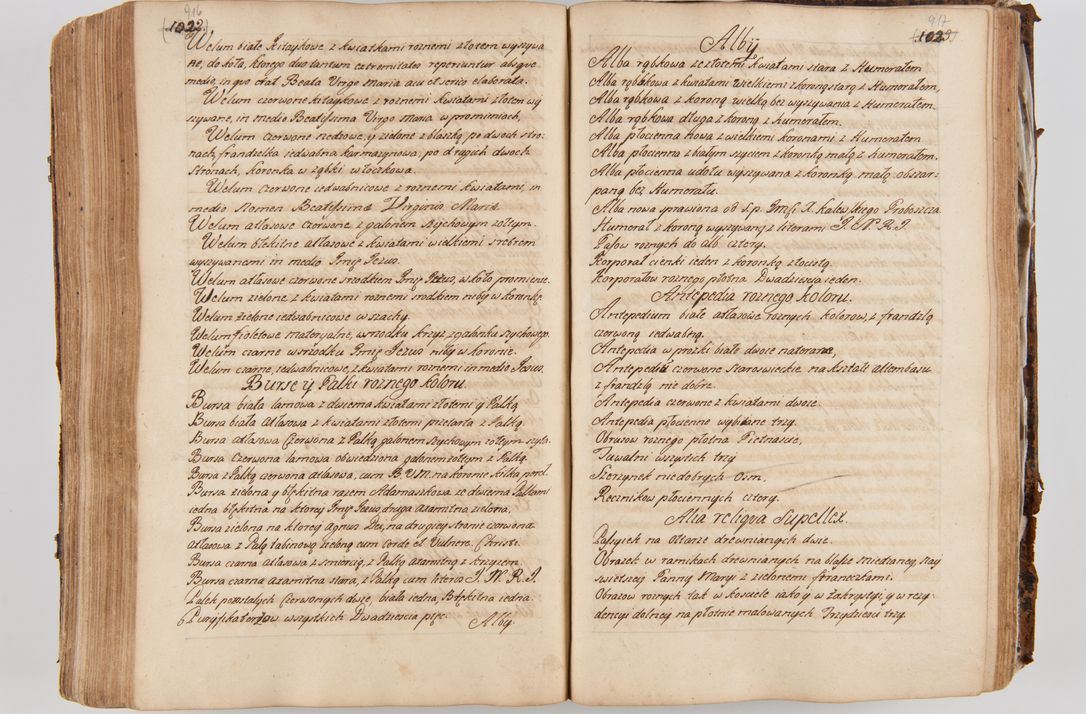 916
1022
Welum białe Kitaykowe z kwiatkami roznemi złotem wyszywa
ne, do koła, ktorego duo tantum extremitates reperiuntur absque
medio, in quo erat Beata Virgo Maria acu et serico elaborata.
Welum czerwone kitaykowe z roznemi kwiatami złotem wy
szywane, in medio Beatissima Virgo Maria w promieniach,
Welum czerwone siedkowe, y zielone z blaszką po dwoch stro-
nach, frandzelka iedwabna karmazynowa, po drugich dwoch
stronach, koronka w ząbki włoczkowa.
Welum czerwone iedwabnicowe z roznemi kwiatami, in
medio Nomen Beatissimæ Virginis Mariæ.
Welum atłasowe czerwone z galonem szychowym zołtym.
Welum błękitne atłasowe z kwiatami wielkiemi srebrem
wyszywanemi in medio Imię Jezus.
Welum atłasowe czerwone srzodkiem Imię Jezus, w koło promienie.
Welum zielone z kwiatami roznemi srodkiem niby w koronkę.
Welum zielone iedwabnicowe w szachy.
Welum fioletowe materyalne, w srzodku krzyz z galonku szychowego.
Welum czarne w srzodku Imię Jezus niby w koronie.
Welum czarne, iedwabnicowe, z kwiatami roznemi in medio Jesus.
Bursę y Palki roznego koloru.
Bursa biała lamowa z dwiema kwiatami złotemi y Palką
Bursa biała atłasowa z kwiatami złotemi przetarta z Palką.
Bursa atłasowa Czerwona z Palką galonem szychowym zołtym szyta.
Bursa Czerwona lamowa obwiedziona galonem zołtym z Palką.
Bursa z Palką czerwona atłasowa, cum B. V. M. na koronie kilka pereł.
Bursa zielona y błękitna razem Adamaszkowa ze dwiema Palkami
iedna błękitna na ktorey Imię Jezus, druga axamitna zielona,
Bursa zielona na ktorey Agnus Dei, na drugiey stronie czerwona
atłasowa z Palą tabinową zieloną cum Corde et Vulnere Christi.
Bursa czarna atłasowa z smiercią, z Palką axamitną z krzyzem
Bursa czarna axamitna stara, z Palką cum literis I. N. R. I.
Palek pozostałych Czerwonych dwie, biała iedna, Błękitna iedna
Puryfikaterzow wszystkich Dwadziescia pięć.
Alby
917
1023
Alby
Alba rąbkowa ze złotemi kwiatami stara z Humerałem
Alba rąbkowa z kwiatami wielkiemi z koroną starą z Humerałem,
Alba rąbkowa z koroną wielką bez wyszywania z Humerałem.
Alba rąbkowa długa z koroną z humerałem.
Alba płocienna nowa z wielkiemi koronami z Humerałem
Alba płocienna z białym szyciem z koronką małą z humerałem.
Alba płocienna u dołu wyszywana z koronką małą obszar-
paną bez Humerału.
Alba nowa sprawiona od ś. p. Imści X. Kalewskiego Proboszcza
Humerał z koroną wyszywany z literami I. N. R. I.
Pasow roznych do alb cztery.
Korporał cienki ieden z koronką złocistą.
Korporałow roznego płotna Dwadziescia ieden.
Antepedia roznego koloru.
Antepedium białe atłasowe roznych kolorow, z frandzlą
czerwoną iedwabną.
Antepedia w prozki białe dwoie
Antepedia czerwone Staroswieckie na kształt altembasu
z frandzlą nie dobre.
Antepedia czerwone z kwiatami dwoie.
Antepedia płocienne wybiiane trzy.
Obrusow roznego płotna Pietnascie,
Tuwalni wszystkich trzy
Scierzynek niedobrych osm,
Ręcznikow płociennych cztery.
Alia reliqva Supellex.
Passyiek na ołtarze drewnianych dwie.
Obrazek w ramkach drewnianych na blasze miedzianey Nay
swiętszey Panny Maryi z zielonemi foraneczkami.
Obrazow roznych tak w kosciele iako y w zakrystyi, y w rezy-
dencyi dolney na płotnie malowanych Trzydziesci trzy.